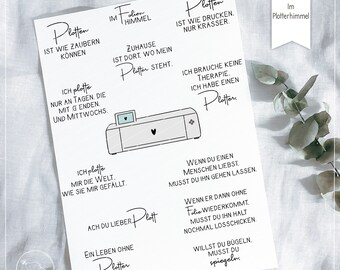 Plotten
IST WIE ZAUBERN
KÖNNEN
IM Folien
HIMMEL
Plotten
IST WIE DRUCKEN.
NUR KRASSER.
ZUHAUSE
IST DORT, WO MEIN
Plotter STEHT.
ICH plotte
NUR AN TAGEN, DIE
MIT G ENDEN.
UND MITTWOCHS.
ICH BRAUCHE KEINE
THERAPIE.
ICH HABE EINEN
Plotter.
ICH plotte
MIR DIE WELT,
WIE SIE MIR GEFÄLLT.
WENN DU EINEN
MENSCHEN LIEBST,
MUSST DU IHN GEHEN LASSEN.
ACH DU LIEBER Plott
WENN ER DANN OHNE
Folie WIEDERKOMMT,
MUSST DU IHN HALT
NOCHMAL LOSSCHICKEN.
EIN LEBEN OHNE
Plotter
WILLST DU BÜGELN,
MUSST DU
spiegeln.
Im
Plotterhimmel